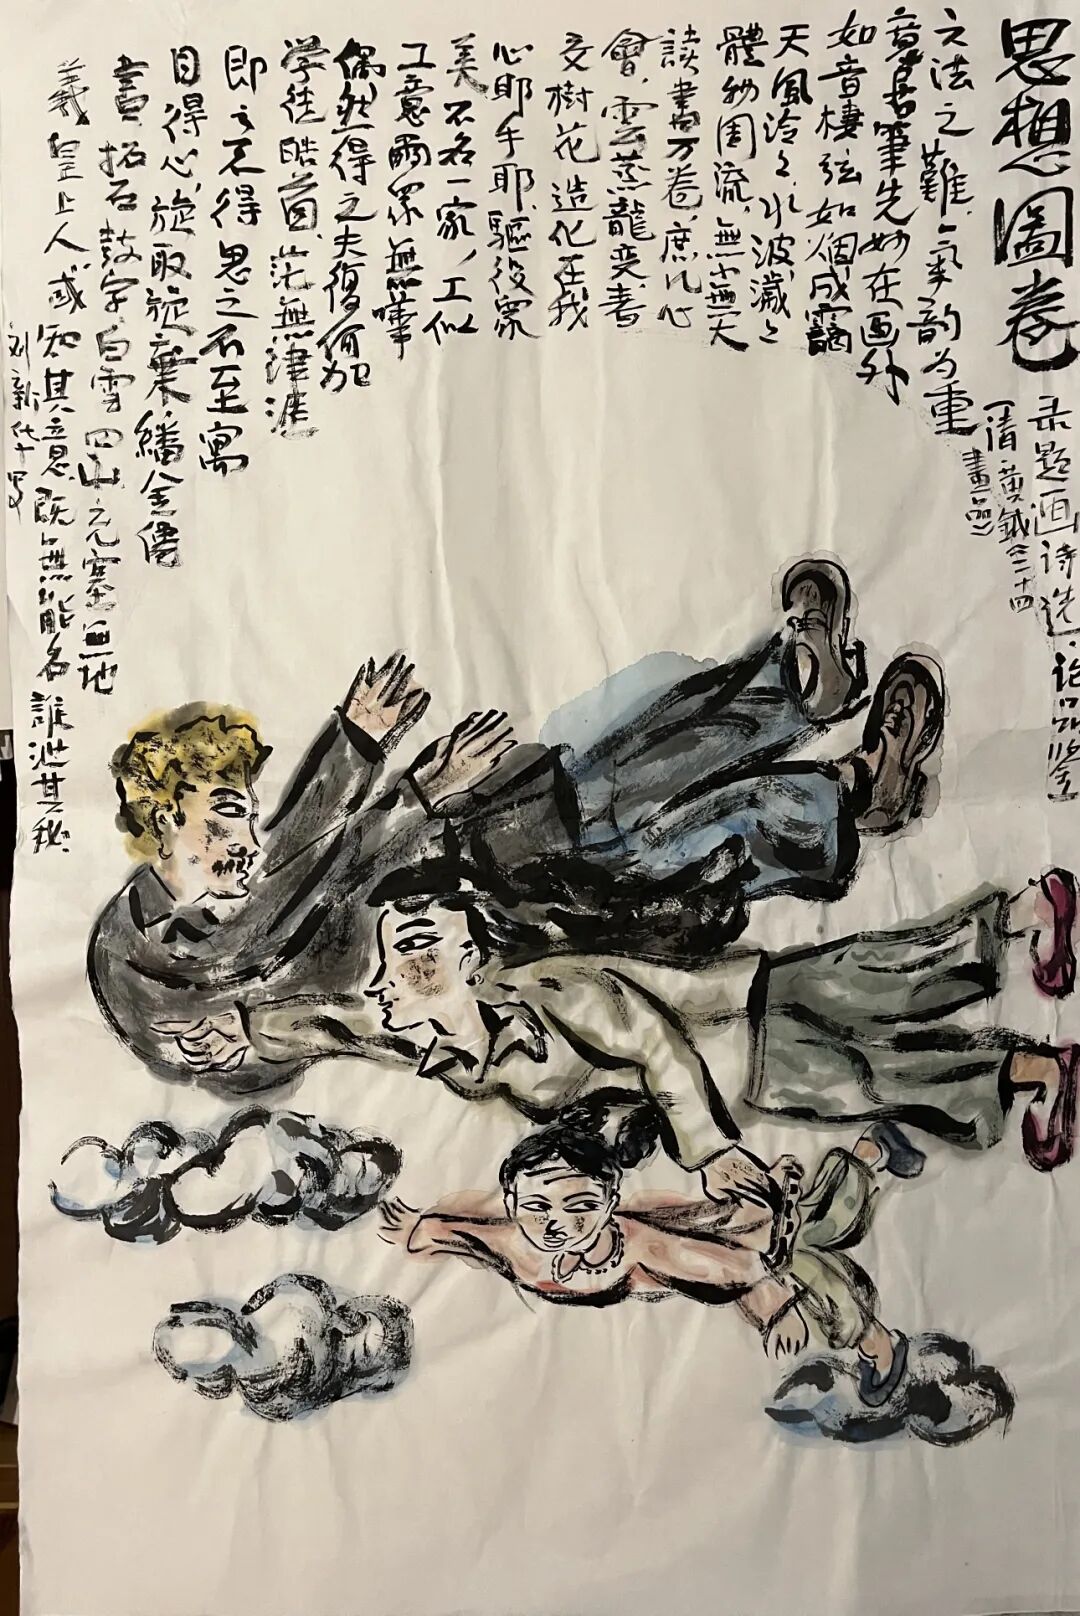 思想圖卷
录题画诗选·论品鉴
(清·黄钺《二十四
畫品》)
六法之難,氣韵为重
意居筆先妙在画外
如音棲弦如烟成靄
天風泠々水波濺々
體物周流,無小無大
讀書万卷,庶几心
會,雲蒸龍变,春
交樹花造化在我
心耶手耶,驅役象
美不名一家,工似
工意爾眾無嘩
偶然得之夫復何加
学徒皓首,茫無津涯
即之不得思之不至寓
目得心,旋取旋棄,繙金僊
書,拓石鼓字,白雪四山充塞無地
羲皇上人,或知其意,既無能名,誰泄其秘.
刘新